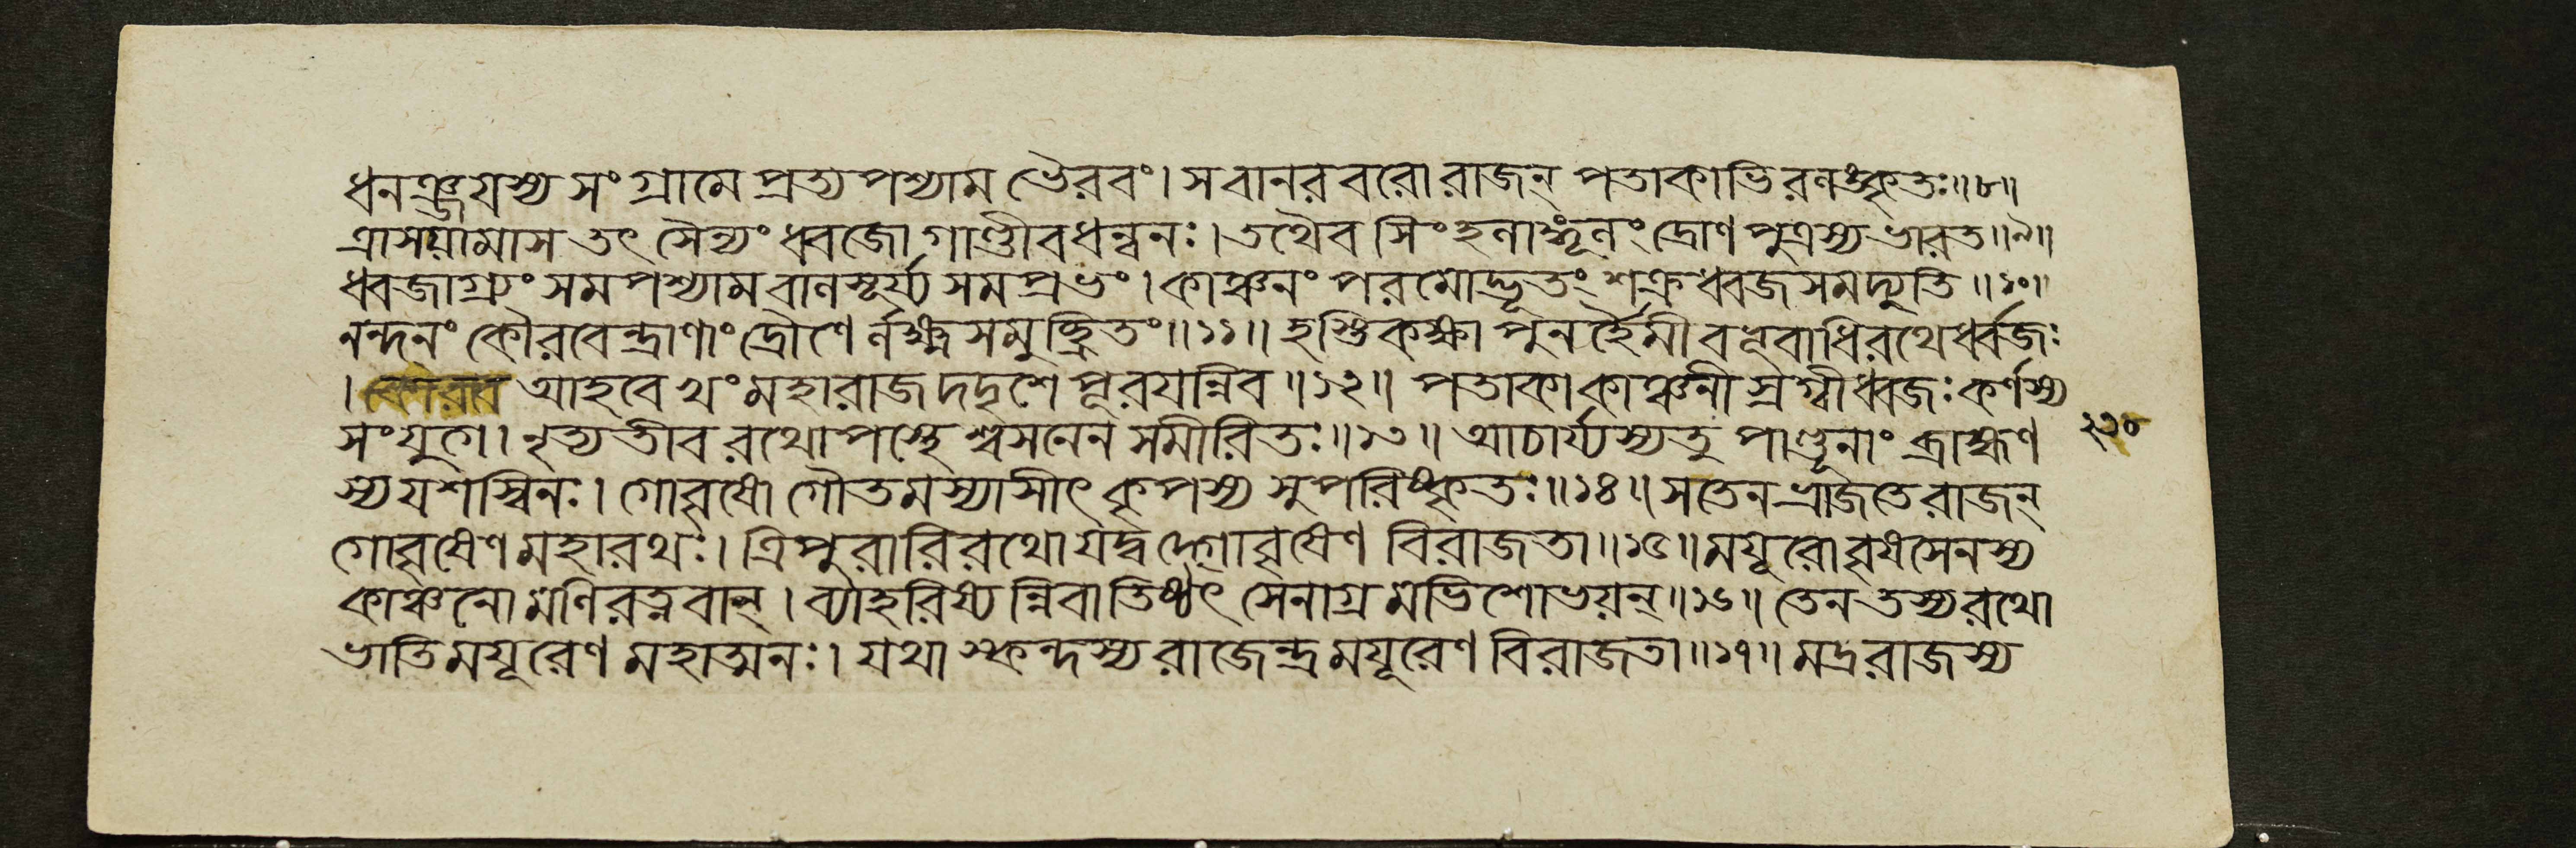 ধনঞ্জযস্য সংগ্রামে প্রত্যপশ্যাম ভৈরবং। স বানরবরো রাজন্ পতাকাভিরলঙ্কৃতঃ॥৮॥
ত্রাসয়ামাস তৎ সৈন্যং ধ্বজো গাণ্ডীবধন্বনঃ। তথৈব সিংহলাঙ্গূলং দ্রোণপুত্রস্য ভারত॥৯॥
ধ্বজাগ্রং সমপশ্যাম বালসূর্য্যসমপ্রভং। কাঞ্চনং পরমোদ্ধূতং শক্রধ্বজসমদ্যুতি॥১০॥
নন্দনং কৌরবেন্দ্রাণাং দ্রৌণের্লক্ষ্ম সমুচ্ছ্রিতং॥১১॥ হস্তিকক্ষা পুনর্হৈমী বভূবাধিরথের্ধ্বজঃ
। আহবে খং মহারাজ দদৃশে পূরযন্নিব॥১২॥ পতাকা কাঞ্চনী স্রগ্বী ধ্বজঃ কর্ণস্য
সংযুগে। নৃত্যতীব রথোপস্থে শ্বসনেন সমীরিতঃ॥১৩॥ আচার্য্যস্য তু পাণ্ডূনাং ব্রাহ্মণ
২৩০
স্য যশস্বিনঃ। গোবৃষো গৌতমস্যাসীৎ কৃপস্য সুপরিষ্কৃতঃ॥১৪॥ স তেন ভ্রাজতে রাজন্
গোবৃষেণ মহারথঃ। ত্রিপুরারিরথো যদ্বদ্গোবৃষেণ বিরাজতা॥১৫॥ ময়ূরো বৃষসেনস্য
কাঞ্চনো মণিরত্নবান্। ব্যাহরিষ্যন্নিবাতিষ্ঠৎ সেনাগ্রমভিশোভয়ন্॥১৬॥ তেন তস্য রথো
ভাতি ময়ূরেণ মহাত্মনঃ। যথা স্কন্দস্য রাজেন্দ্র ময়ূরেণ বিরাজতা॥১৭॥ মদ্ররাজস্য